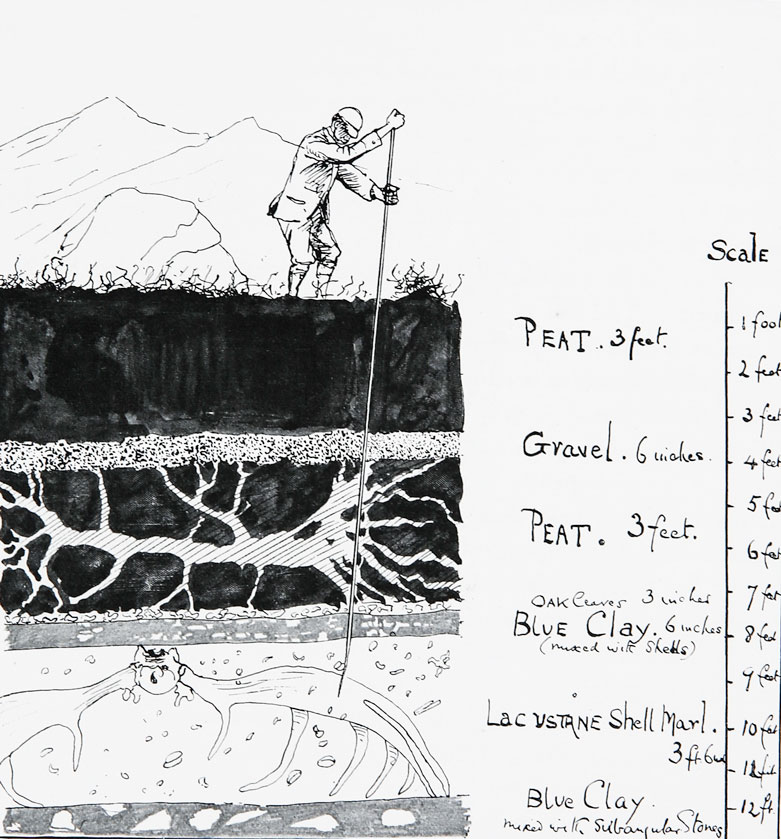 Scale
1 foot
PEAT. 3 feet.
2 feet
3 feet
Gravel. 6 inches.
4 feet
5 feet
PEAT. 3 feet.
6 feet
OAK leaves 3 inches
7 feet
BLUE Clay. 6 inches
8 feet
(mixed with Shells)
9 feet
LACUSTRINE Shell Marl.
10 feet
3 ft 6 in
11 feet
Blue Clay.
12 ft
mixed with Subangular Stones